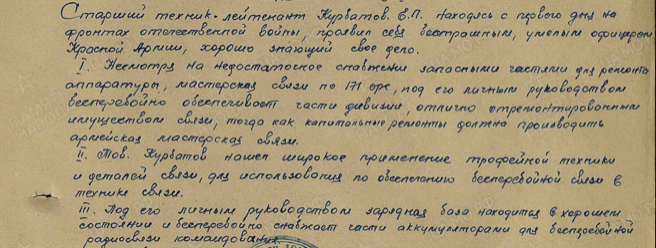 Старший техник-лейтенант Курбатов. Е.П. находясь с первого дня на
фронтах отечественной войны, проявил себя бесстрашным, умелым офицером
Красной Армии, хорошо знающий свое дело.
I. Несмотря на недостаточное снабжение запасными частями для ремонта
аппаратуры, мастерская связи по 171 орс, под его личным руководством
бесперебойно обеспечивает части дивизии, отлично отремонтированным
имуществом связи, тогда как капитальные ремонты должна производить
армейская мастерская связи.
II. Тов. Курбатов нашел широкое применение трофейной техники
и деталей связи, для использования по обеспечению бесперебойной связи в
технике связи.
III. Под его личным руководством зарядная база находится в хорошем
состоянии и бесперебойно снабжает части аккумуляторами для бесперебойной
радиосвязи командования.